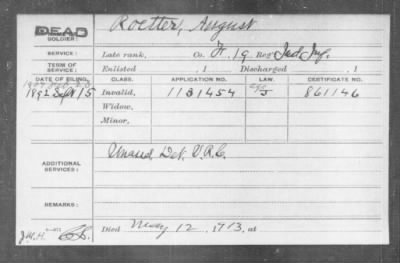 DEAD Roetter, August
SOLDIER:
SERVICE: Late rank, Co. F. 19 Reg't Ind. Inf.
TERM OF SERVICE: Enlisted , 1 Discharged , 1
DATE OF FILING. CLASS. APPLICATION NO. LAW. CERTIFICATE NO.
1892 Sept 15 Invalid, 1131454 J 861146
Widow,
Minor,
ADDITIONAL SERVICES: Unassd. Det. V.R.C.
REMARKS:
Died May 12, 1913, at